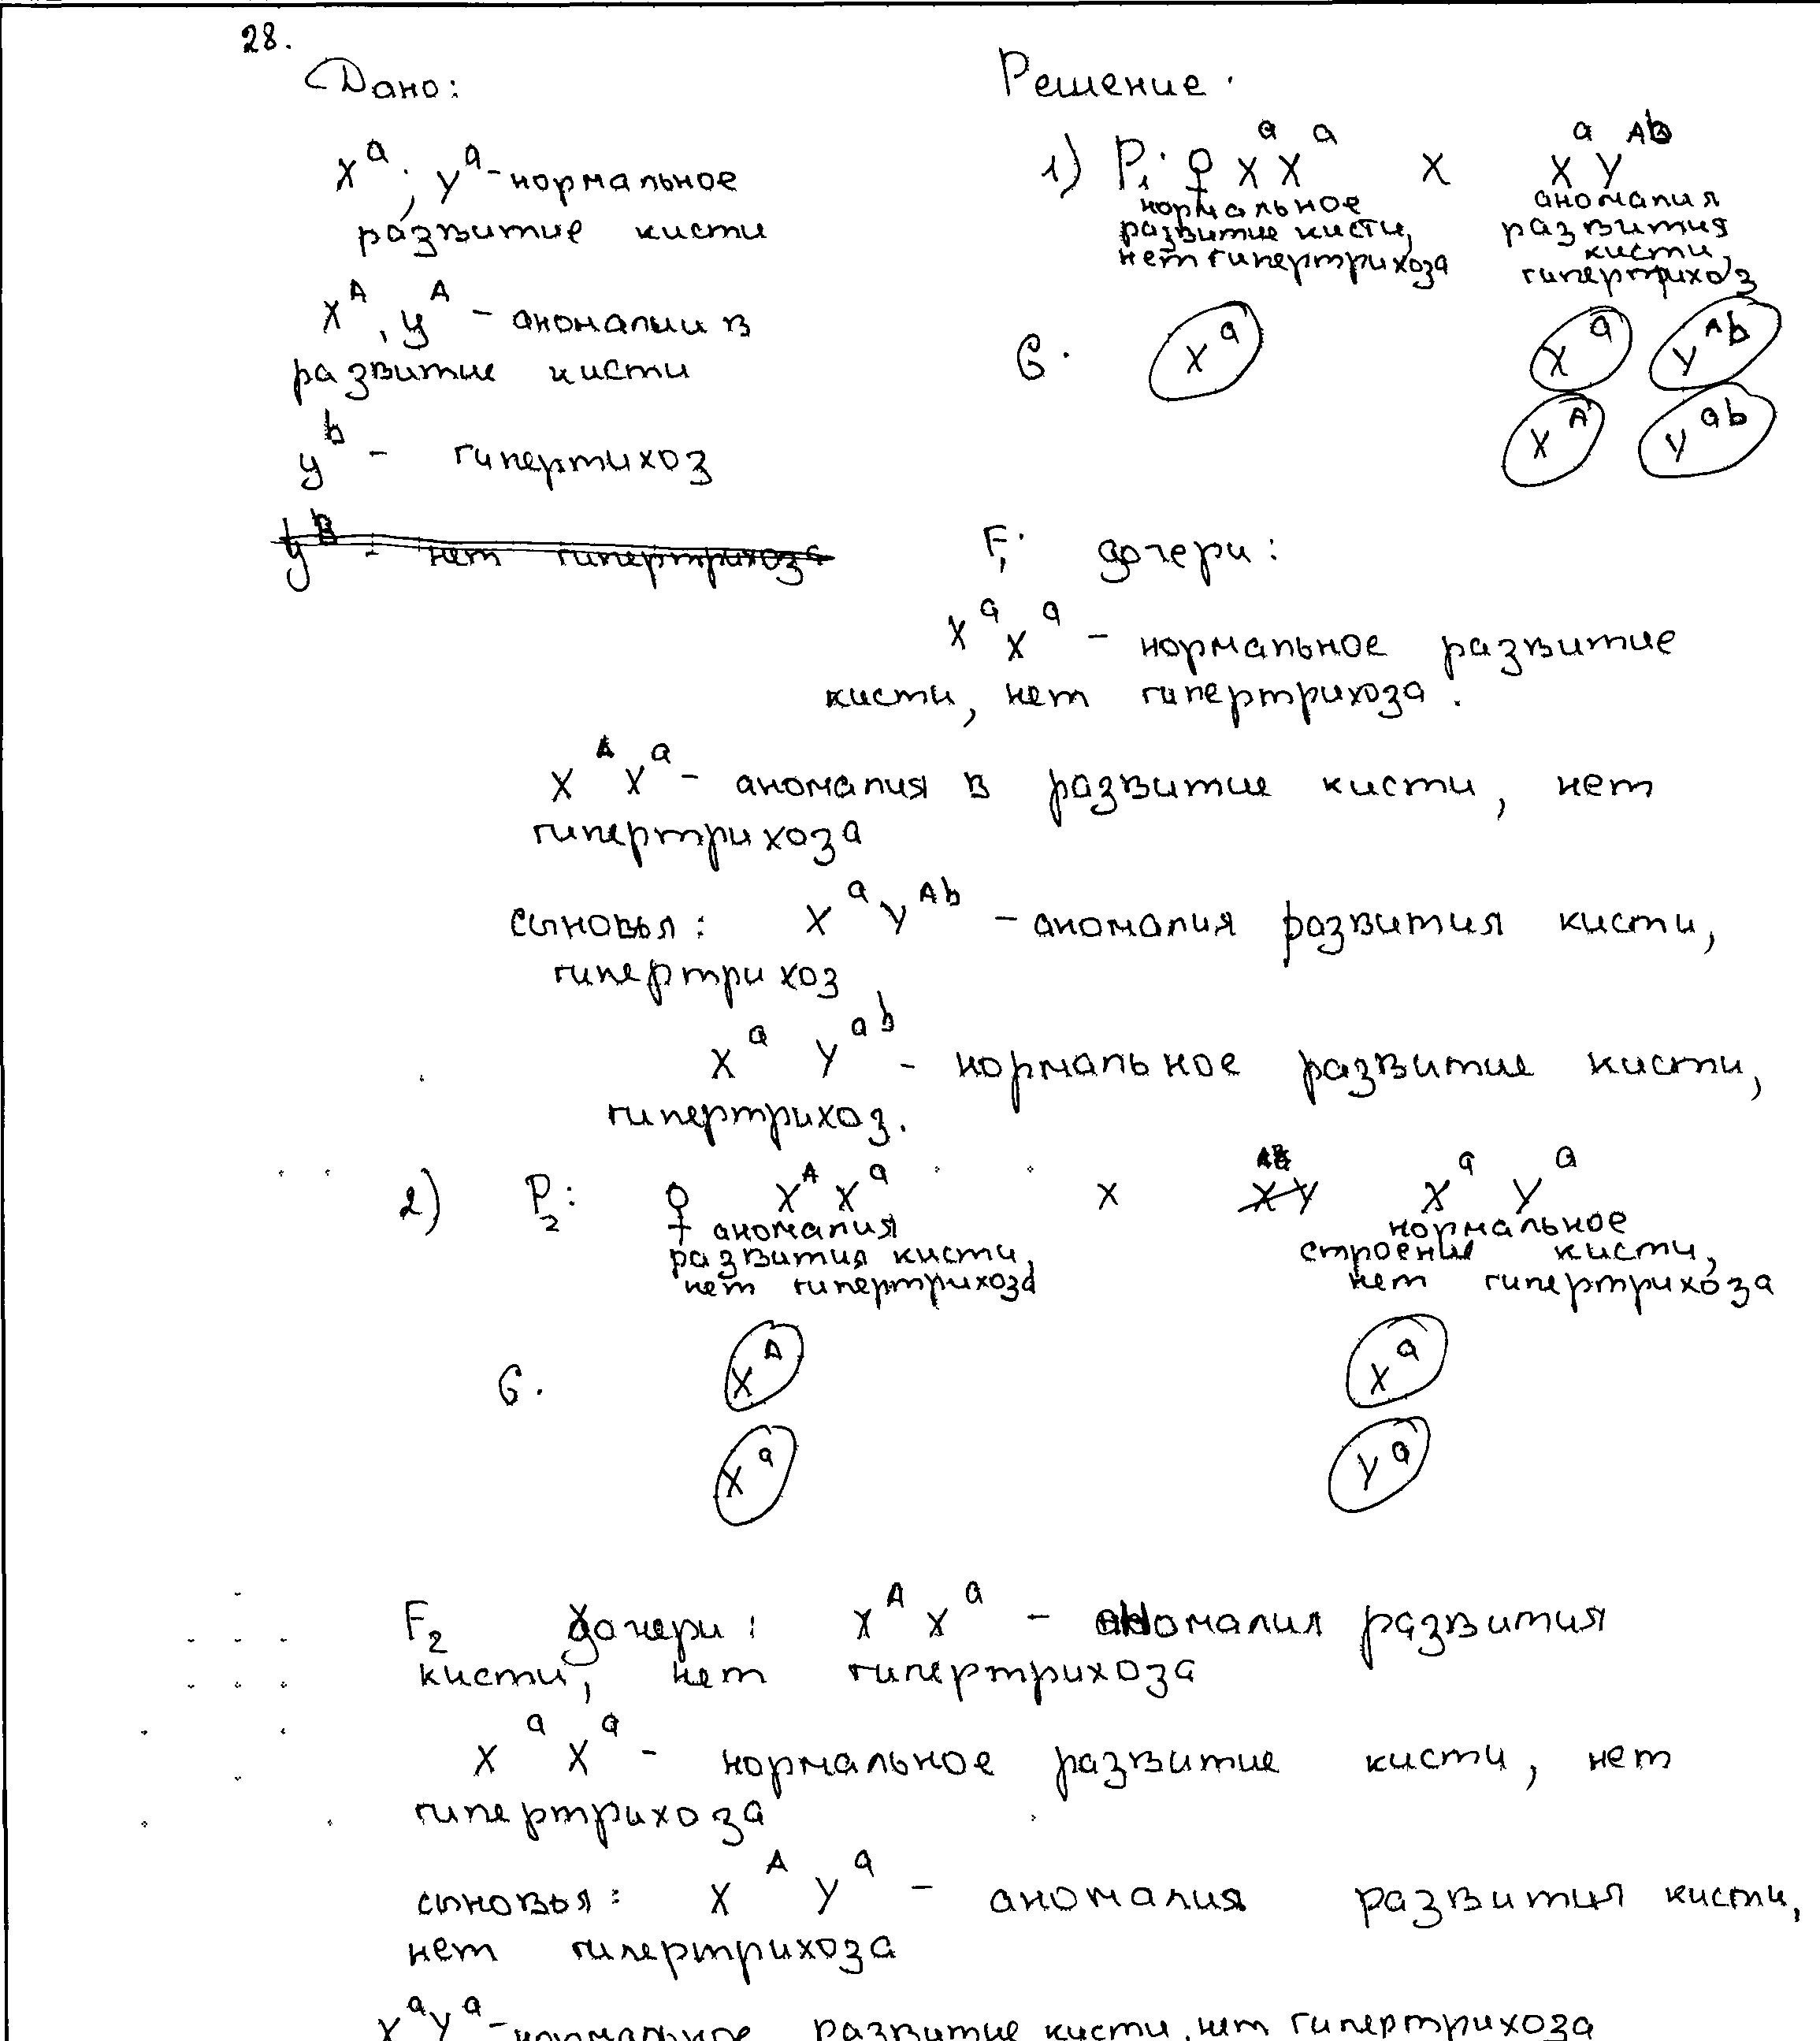 28.
Дано:
Решение.
X^a; y^a - нормальное
развитие кисти
X^A, y^A - аномалии в
развитие кисти
y^b - гипертихоз
y^B - нет гипертрихоза
1) P₁: ♀ X^a X^a x X^a Y^Ab
нормальное развитие кисти, нет гипертрихоза
аномалия развития кисти, гипертрихоз
G. X^a X^a Y^Ab
X^A Y^ab
F₁. дочери:
X^a X^a - нормальное развитие
кисти, нет гипертрихоза.
X^A X^a - аномалия в развитие кисти, нет
гипертрихоза
сыновья: X^a Y^Ab - аномалия развития кисти,
гипертрихоз
X^a Y^ab - нормальное развитие кисти,
гипертрихоз.
2) P₂: ♀ X^A X^a x X Y X^a Y^a
аномалия развития кисти, нет гипертрихоза
нормальное строение кисти, нет гипертрихоза
G. X^A X^a
X^a Y^a
F₂ дочери: X^A X^a - аномалия развития
кисти, нет гипертрихоза
X^a X^a - нормальное развитие кисти, нет
гипертрихоза
сыновья: X^A Y^a - аномалия развития кисти,
нет гипертрихоза
X^a Y^a - нормальное развитие кисти, нет гипертрихоза